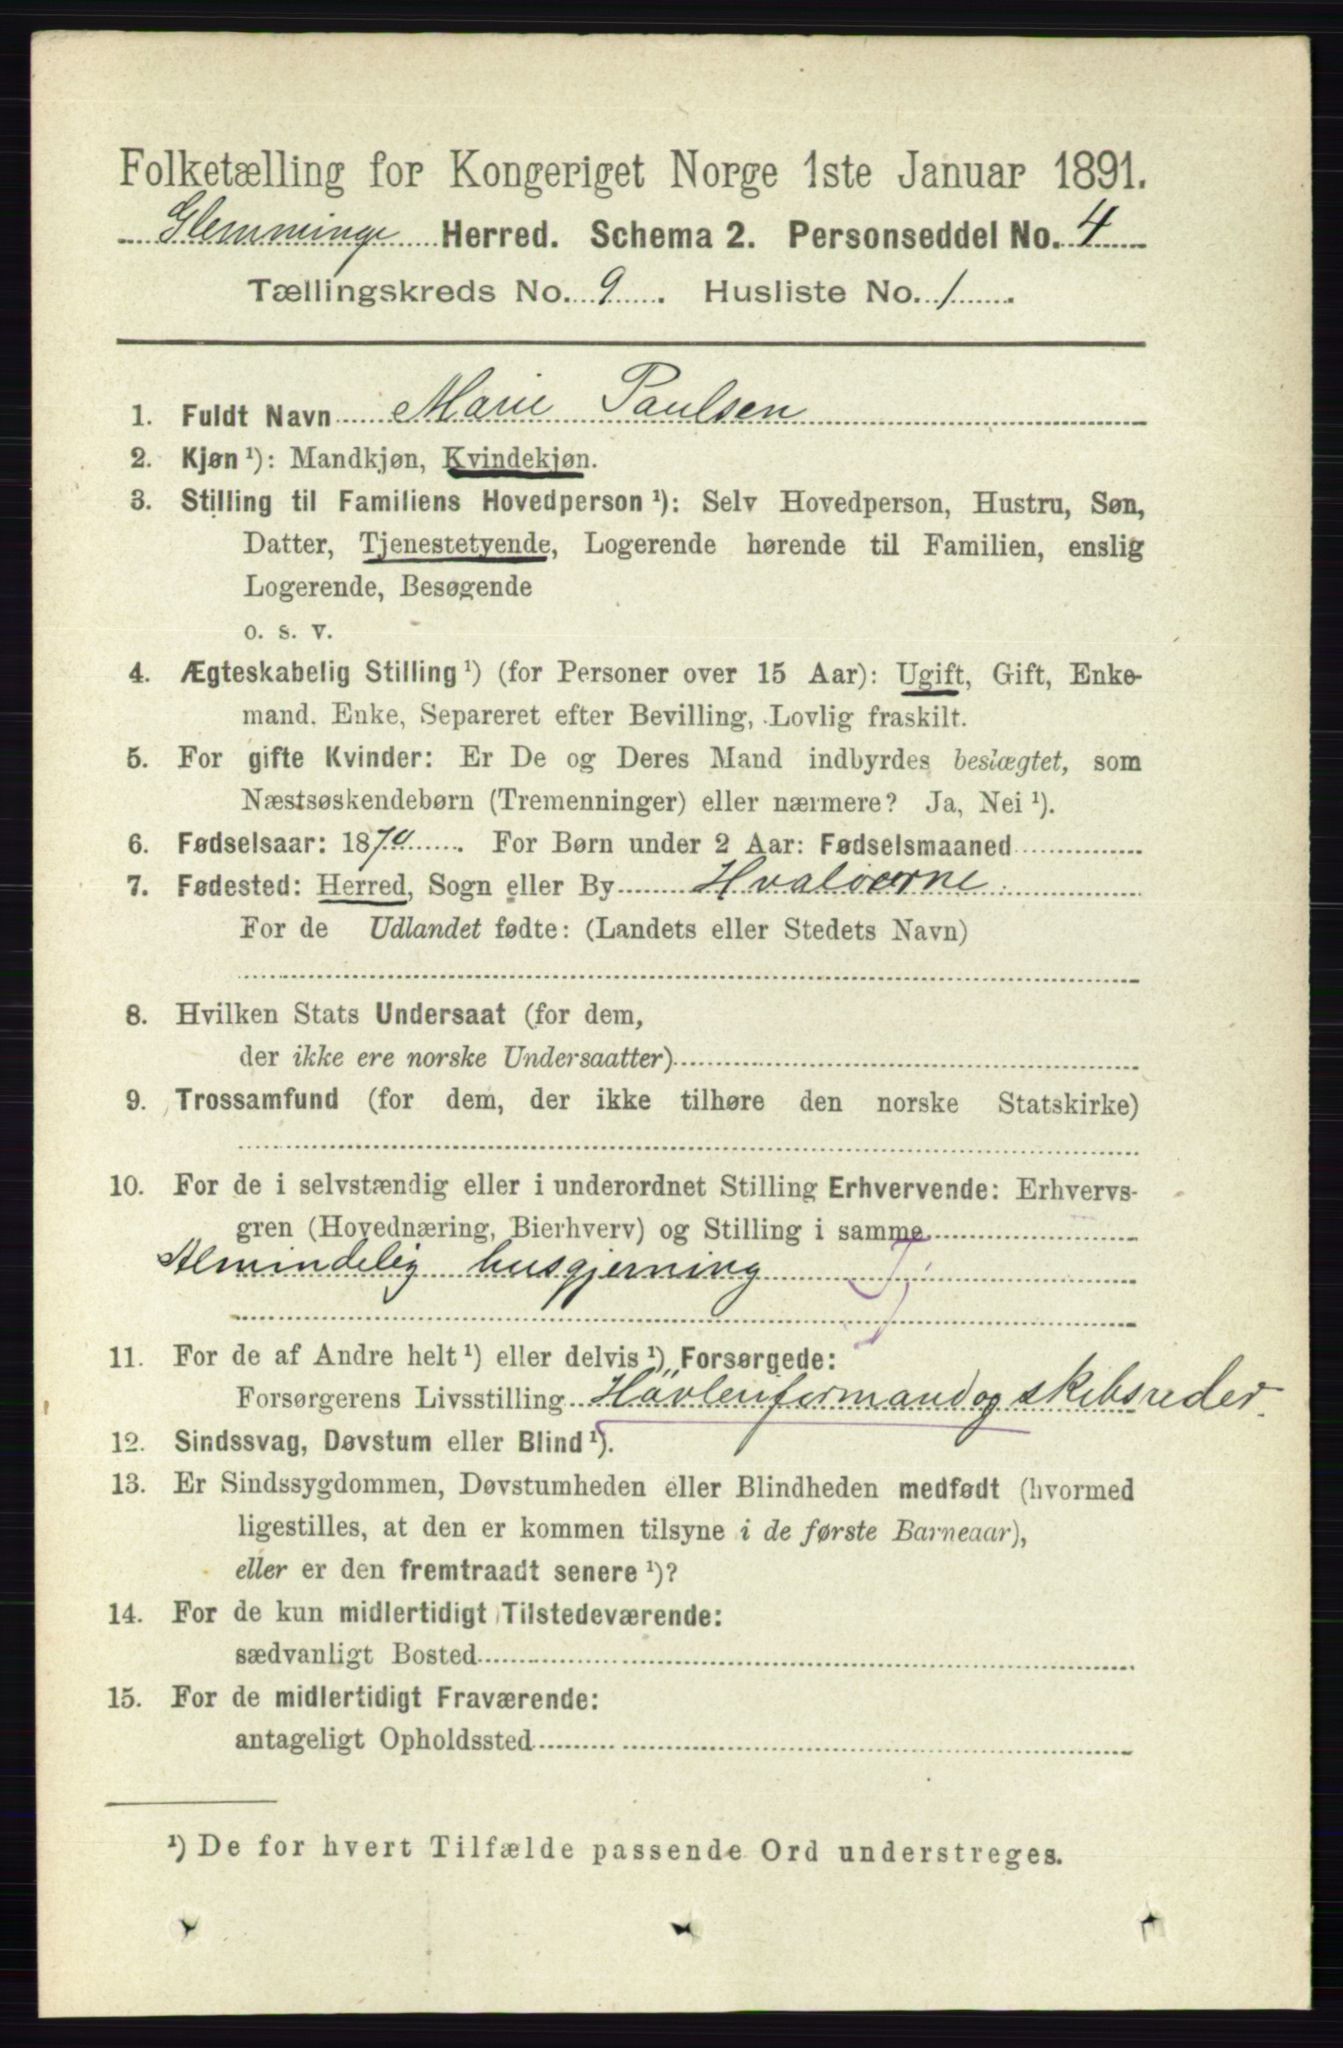 Folketælling for Kongeriget Norge 1ste Januar 1891.
Glemminge Herred. Schema 2. Personseddel No. 4
Tællingskreds No. 9. Husliste No. 1.
1. Fuldt Navn Marie Paulsen
2. Kjøn ¹): Mandkjøn, Kvindekjøn.
3. Stilling til Familiens Hovedperson ¹): Selv Hovedperson, Hustru, Søn,
Datter, Tjenestetyende, Logerende hørende til Familien, enslig
Logerende, Besøgende
o. s. v.
4. Ægteskabelig Stilling ¹) (for Personer over 15 Aar): Ugift, Gift, Enke-
mand. Enke, Separeret efter Bevilling, Lovlig fraskilt.
5. For gifte Kvinder: Er De og Deres Mand indbyrdes beslægtet, som
Næstsøskendebørn (Tremenninger) eller nærmere? Ja, Nei ¹).
6. Fødselsaar: 1870. For Børn under 2 Aar: Fødselsmaaned
7. Fødested: Herred, Sogn eller By Hvaløerne
For de Udlandet fødte: (Landets eller Stedets Navn)
8. Hvilken Stats Undersaat (for dem,
der ikke ere norske Undersaatter)
9. Trossamfund (for dem, der ikke tilhøre den norske Statskirke)
10. For de i selvstændig eller i underordnet Stilling Erhvervende: Erhvervs-
gren (Hovednæring, Bierhverv) og Stilling i samme
Almindelig husgjerning
11. For de af Andre helt ¹) eller delvis ¹) Forsørgede:
Forsørgerens Livsstilling Hövleriformand og skibsreder.
12. Sindssvag, Døvstum eller Blind ¹).
13. Er Sindssygdommen, Døvstumheden eller Blindheden medfødt (hvormed
ligestilles, at den er kommen tilsyne i de første Barneaar),
eller er den fremtraadt senere ¹)?
14. For de kun midlertidigt Tilstedeværende:
sædvanligt Bosted
15. For de midlertidigt Fraværende:
antageligt Opholdssted
¹) De for hvert Tilfælde passende Ord understreges.